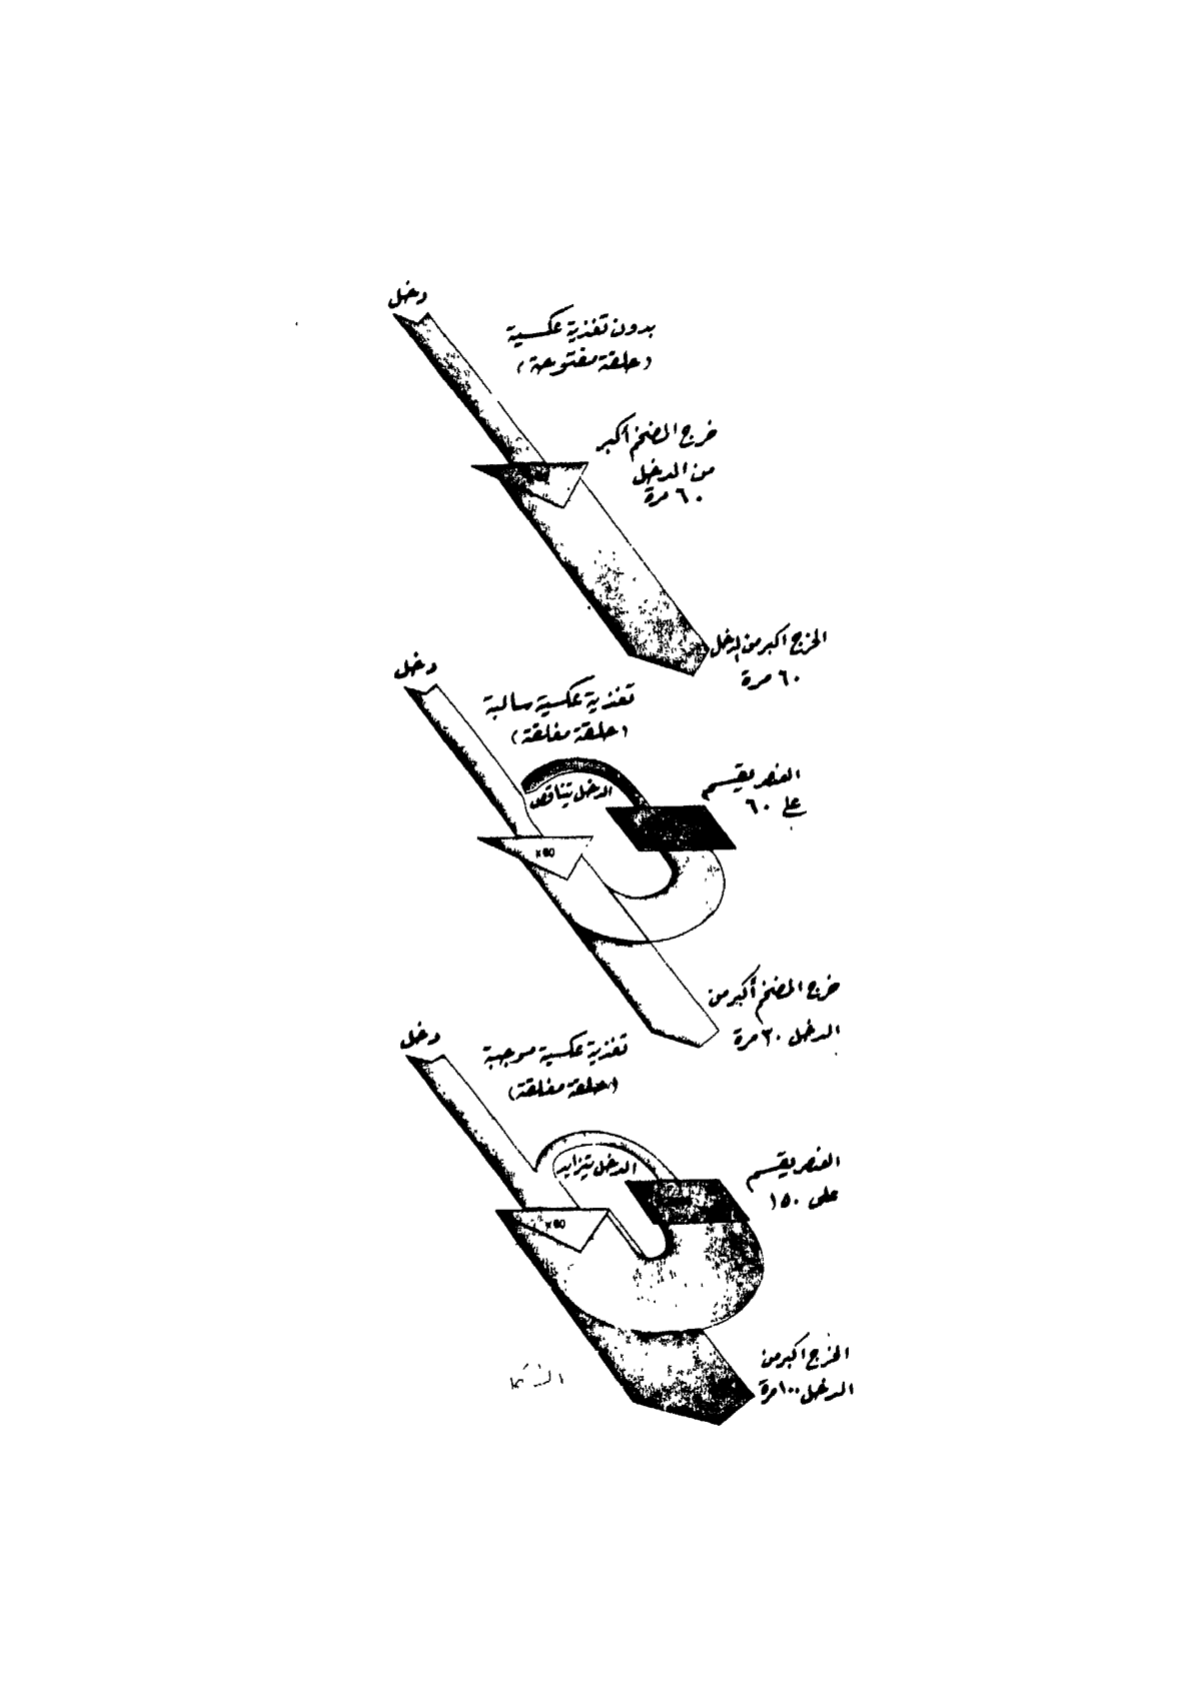 دخل
بدون تغذية عكسية
(حلقة مفتوحة)
خرج المضخم أكبر
من الدخل
٦٠ مرة
الخرج اكبر من الدخل
٦٠ مرة
دخل
تغذية عكسية سالبة
(حلقة مغلقة)
الدخل يتناقص
العنصر يقسم
على ٦٠
x 60
خرج المضخم أكبر من
الدخل ٣٠ مرة
دخل
تغذية عكسية موجبة
(حلقة مغلقة)
الدخل يتزايد
العنصر يقسم
على ١٥٠
x 60
الخرج اكبر من
الدخل ١٠٠ مرة